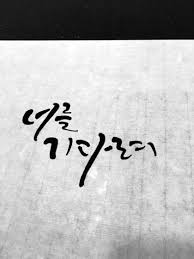 너를
기다리며